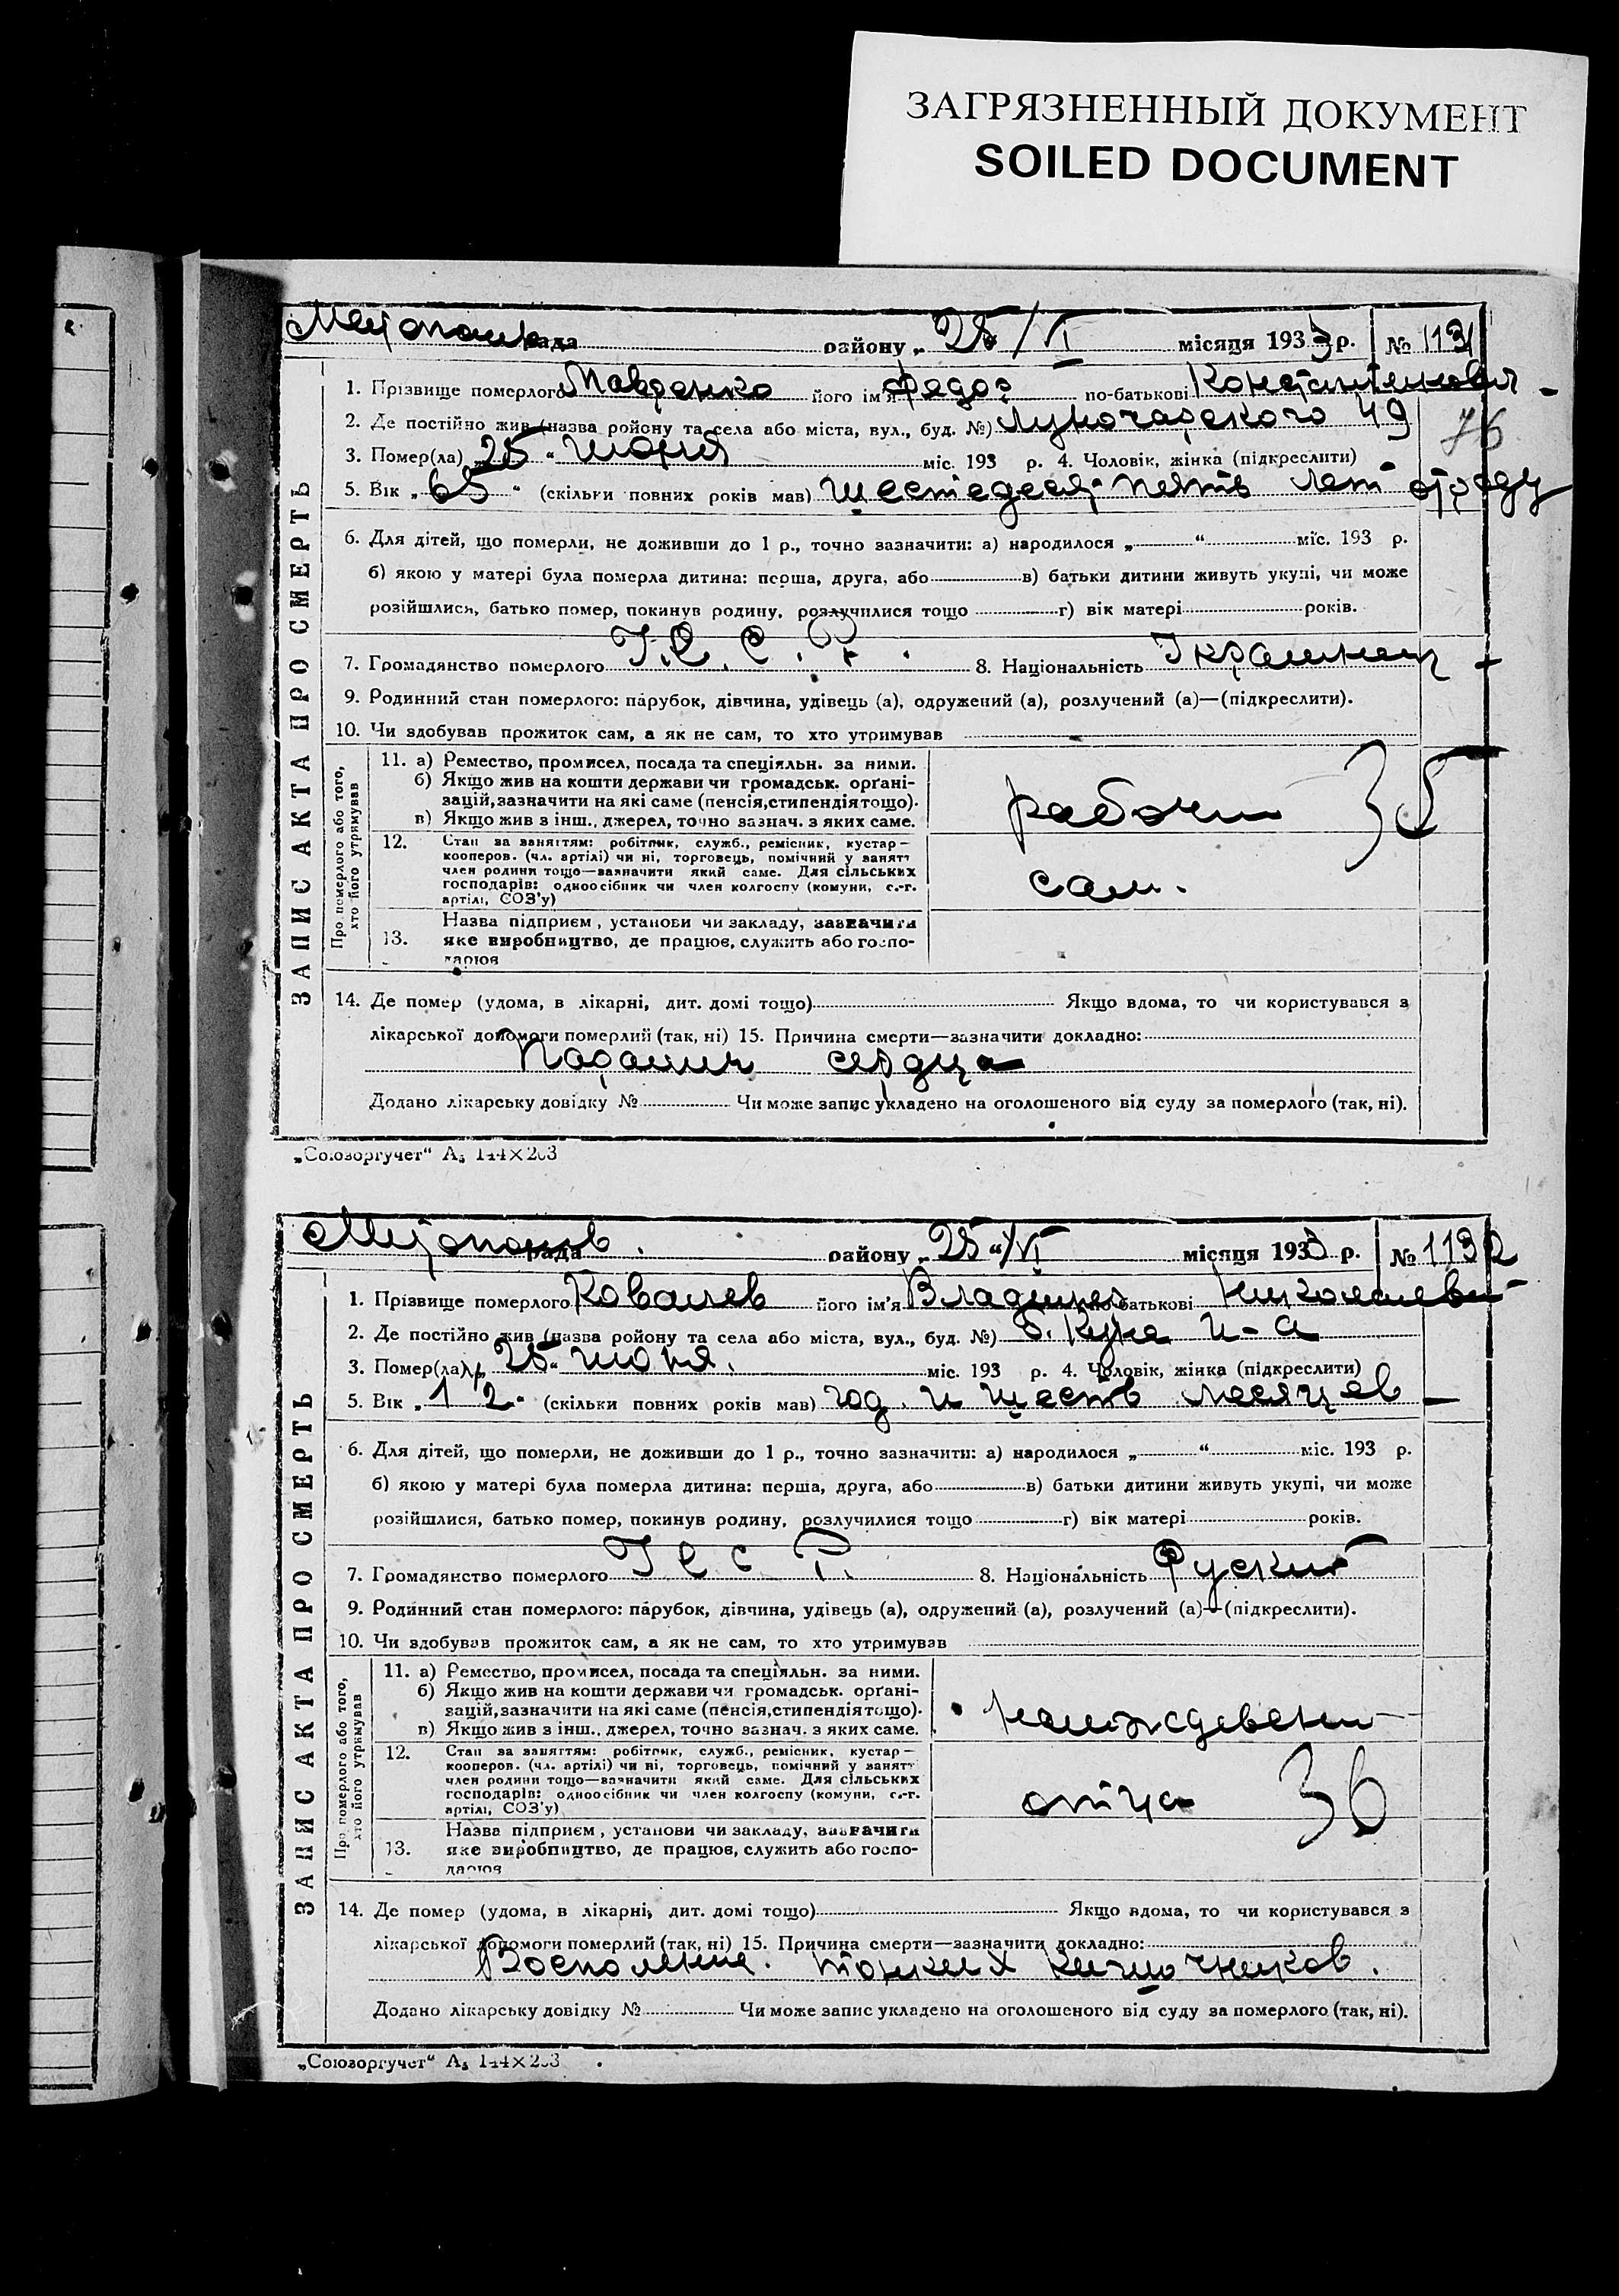 ЗАГРЯЗНЕННЫЙ ДОКУМЕНТ
SOILED DOCUMENT
рада району „ 25 /VI місяця 1933 р. № 1131
1. Прізвище померлого його ім'я Федор по-батькові Константинович
2. Де постійно жив (назва ройону та села або міста, вул., буд. №) Луночарского 49
76
3. Помер(ла) „25“ июня міс. 193 р. 4. Чоловік, жінка (підкреслити)
5. Вік „65“ (скільки повних років мав) шестедесят пять лет
6. Для дітей, що померли, не доживши до 1 р., точно зазначити: а) народилося „ “ міс. 193 р.
б) якою у матері була померла дитина: перша, друга, або в) батьки дитини живуть укупі, чи може
розійшлися, батько помер, покинув родину, розлучилися тощо г) вік матері років.
7. Громадянство померлого У.С.С.Р. 8. Національність Украинец
9. Родинний стан померлого: парубок, дівчина, удівець (а), одружений (а), розлучений (а)—(підкреслити).
10. Чи здобував прожиток сам, а як не сам, то хто утримував
ЗАПИС АКТА ПРО СМЕРТЬ
Про померлого або того,
хто його утримував
11. а) Ремество, промисел, посада та спеціяльн. за ними.
б) Якщо жив на кошти держави чи громадськ. орґані-
зацій, зазначити на які саме (пенсія, стипендія тощо).
в) Якщо жив з інш., джерел, точно зазнач. з яких саме.
рабочи 35
12. Стан за заняттям: робітник, служб., ремісник, кустар—
кооперов. (чл. артілі) чи ні, торговець, помічний у занятт
член родини тощо—зазначити який саме. Для сільських
господарів: одноосібник чи член колгоспу (комуни, с.-г.
артілі, СОЗ'у)
сам.
13. Назва підприєм, установи чи закладу, зазначити
яке виробництво, де працює, служить або госпо-
дарює
14. Де помер (удома, в лікарні, дит. домі тощо) Якщо вдома, то чи користувався з
лікарської допомоги померлий (так, ні) 15. Причина смерти—зазначити докладно:
сердца
Додано лікарську довідку № Чи може запис укладено на оголошеного від суду за померлого (так, ні).
„Союзоргучет“ А₅ 144×203
рада району „ 25 “ VI місяця 1933 р. № 1132
1. Прізвище померлого Ковалев його ім'я Владимир по-батькові Николаевич
2. Де постійно жив (назва ройону та села або міста, вул., буд. №)
3. Помер(ла) „25“ июня. міс. 193 р. 4. Чоловік, жінка (підкреслити)
5. Вік „1 2“ (скільки повних років мав) год. и шесть месяцев
6. Для дітей, що померли, не доживши до 1 р., точно зазначити: а) народилося „ “ міс. 193 р.
б) якою у матері була померла дитина: перша, друга, або в) батьки дитини живуть укупі, чи може
розійшлися, батько помер, покинув родину, розлучилися тощо г) вік матері років.
7. Громадянство померлого У С С Р. 8. Національність Руский
9. Родинний стан померлого: парубок, дівчина, удівець (а), одружений (а), розлучений (а)—(підкреслити).
10. Чи здобував прожиток сам, а як не сам, то хто утримував
ЗАПИС АКТА ПРО СМЕРТЬ
Про померлого або того,
хто його утримував
11. а) Ремество, промисел, посада та спеціяльн. за ними.
б) Якщо жив на кошти держави чи громадськ. орґані-
зацій, зазначити на які саме (пенсія, стипендія тощо).
в) Якщо жив з інш., джерел, точно зазнач. з яких саме.
12. Стан за заняттям: робітник, служб., ремісник, кустар—
кооперов. (чл. артілі) чи ні, торговець, помічний у занятт
член родини тощо—зазначити який саме. Для сільських
господарів: одноосібник чи член колгоспу (комуни, с.-г.
артілі, СОЗ'у)
отца 36
13. Назва підприєм, установи чи закладу, зазначити
яке виробництво, де працює, служить або госпо-
дарює
14. Де помер (удома, в лікарні, дит. домі тощо) Якщо вдома, то чи користувався з
лікарської допомоги померлий (так, ні) 15. Причина смерти—зазначити докладно:
тонких
Додано лікарську довідку № Чи може запис укладено на оголошеного від суду за померлого (так, ні).
„Союзоргучет“ А₅ 144×203